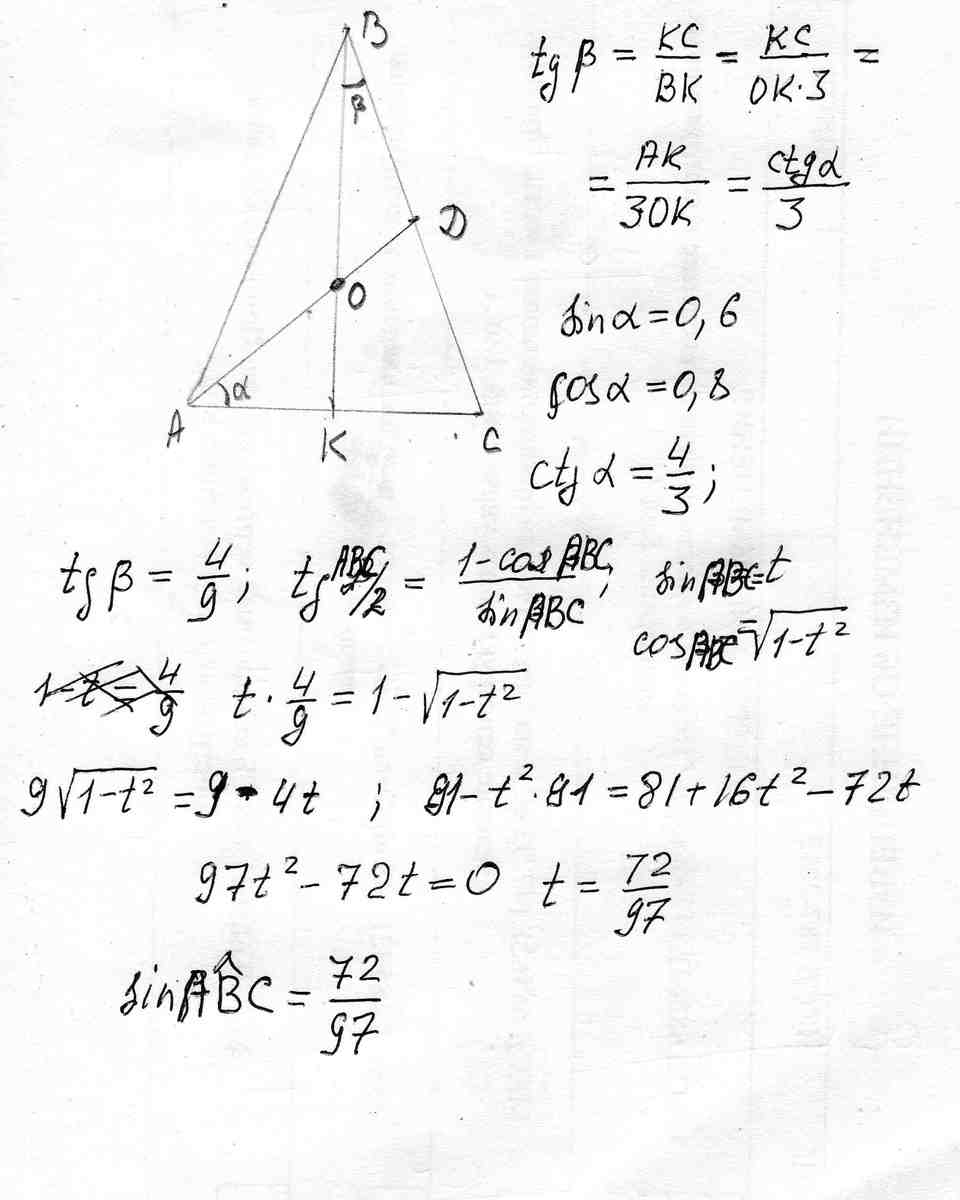 B
β
D
O
α
A
K
C
tg β = KC/BK = KC/OK·3 =
= AK/3OK = ctgα/3
sin α = 0,6
cos α = 0,8
ctg α = 4/3;
tg β = 4/9; tg ABC/2 = 1-cos ABC/sin ABC; sin ABC = t
cos ABC = √1-t²
t · 4/9 = 1 - √1-t²
9√1-t² = 9 - 4t ; 81 - t²·81 = 81 + 16t² - 72t
97t² - 72t = 0 t = 72/97
sin AB̂C = 72/97